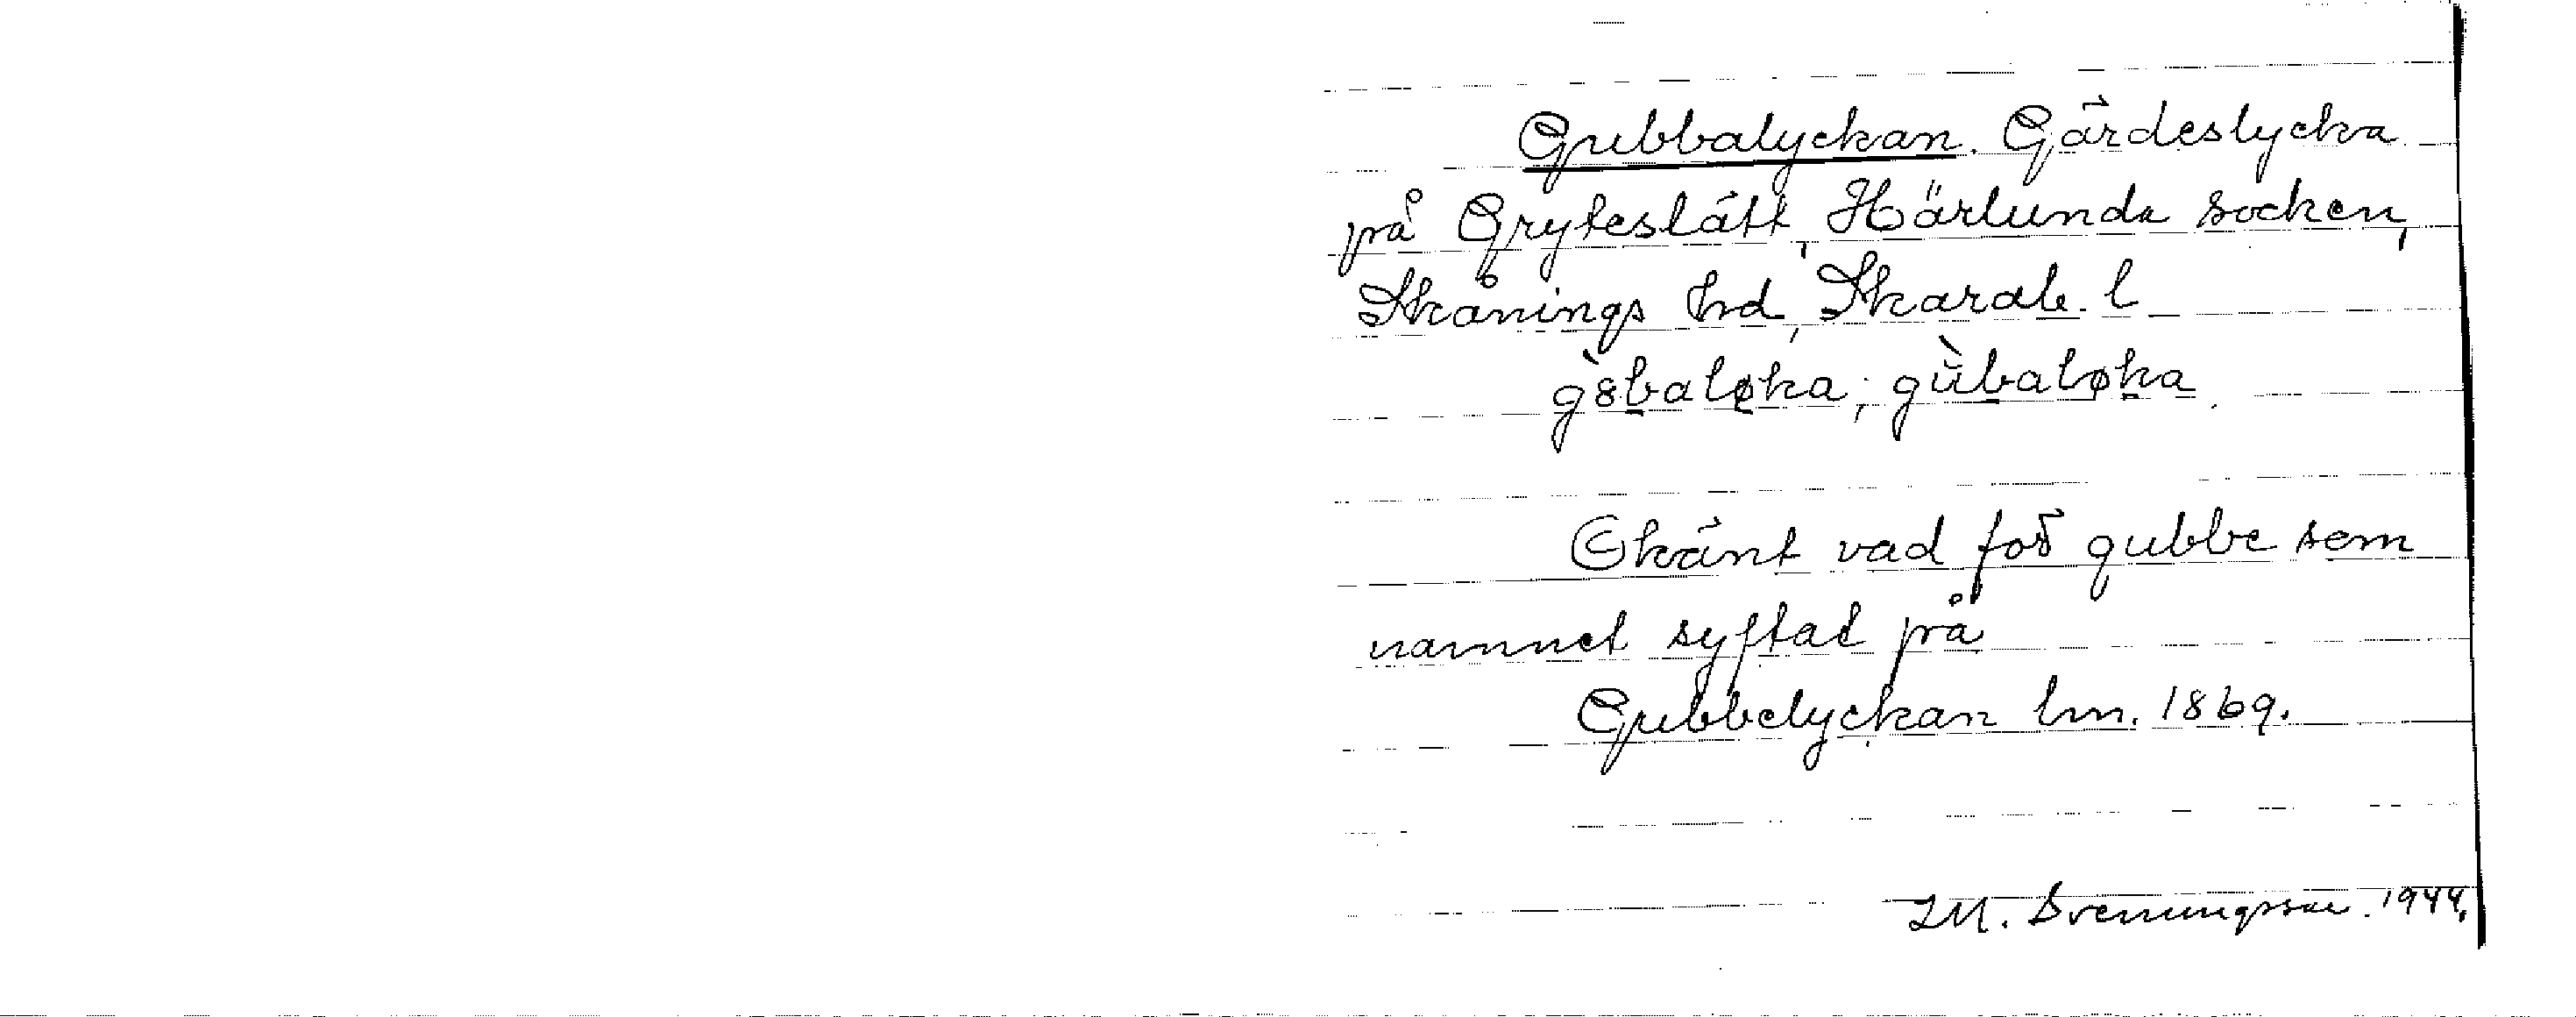 Gubbalyckan. Gärdeslycka
på Gryteslätt, Härlunda socken,
Skånings hd, Skarab. l
g̀8baløka; gùbaløka.
Okänt vad för gubbe som
namnet syftat på
Gubbelyckan lm. 1869.
M. Svenungsson. 1944.